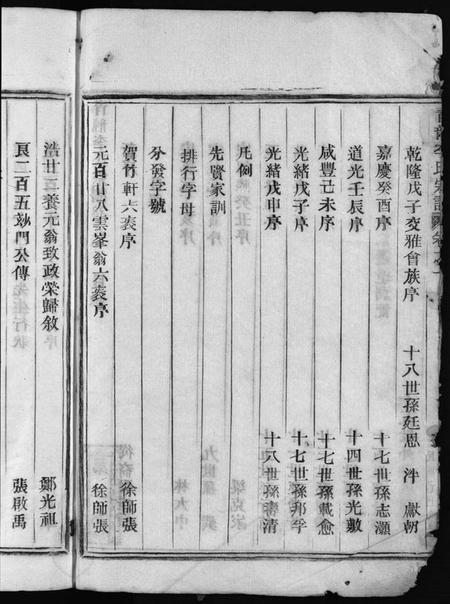 乾隆戊子交雅會族序 十八世孫廷恩 泮 獻朝
嘉慶癸酉序 十七世孫志灝
道光壬辰序 十四世孫光數
咸豐己未序 十七世孫載愈
光緒戊子序 十七世孫邦孚
光緒戊申序 十八世孫壽清
凡例
先賢家訓
排行字母
分發字號
賀竹軒六袠序 徐師張
元百廿八雲峯翁六袠序 徐師張
浩廿三養元翁致政榮歸敘 鄒光祖
良二百五妙門公傳 張啟禹